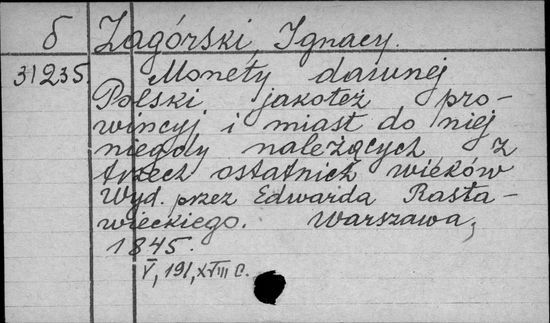 б Zagórski, Ignacy.
31235. Monety dawnej
Polski jakoteż pro-
wincyj i miast do niej
niegdy należących z
trzech ostatnich wieków
Wyd. przez Edwarda Rasta-
wieckiego. Warszawa,
1845.
V, 191, XVIII С.